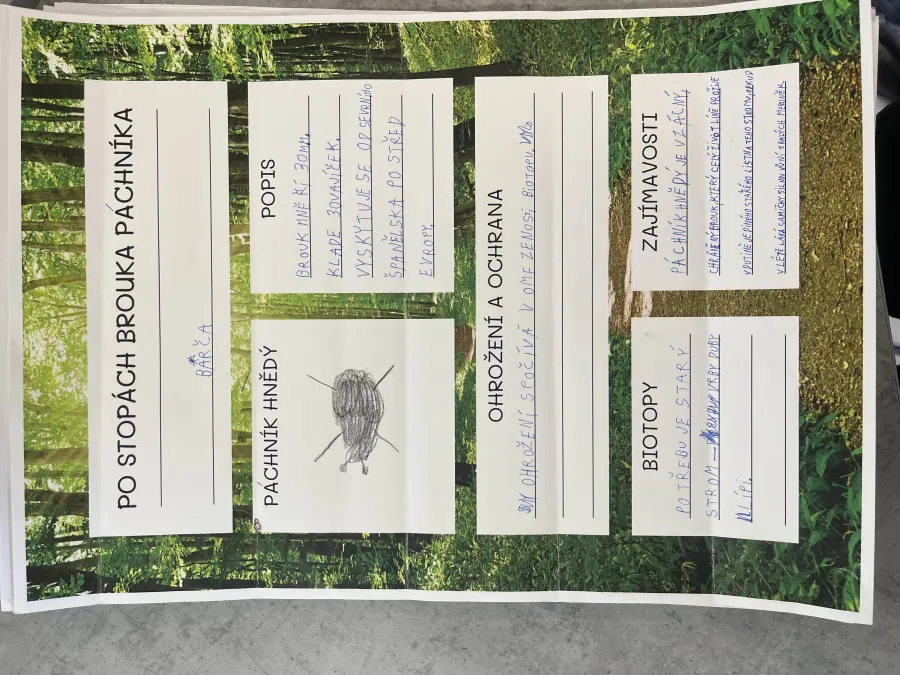 PO STOPÁCH BROUKA PÁCHNÍKA
BÁRČA
PÁCHNÍK HNĚDÝ
POPIS
BROUK MNĚŘÍ 30MM,
KLADE 30VAJÍČEK.
VYSKYTUJE SE OD SEVRNÍHO
ŠPANĚLSKA PO STŘED
EVROPY.
OHROŽENÍ A OCHRANA
OHROŽENÍ SPOČÍVÁ V OMEZENOSI BIOTOPU,
BIOTOPY
POTŘEBUJE STARÝ
STROM – VRBY DUBY
LÍPI.
ZAJÍMAVOSTI
PÁCHNÍK HNĚDÝ JE VZÁCNÝ,
CHRÁNĚNÝ BROUK, KTERÝ CELÝ ŽIVOT LÍNĚ PROŽIJE
V DUTINĚ JEDINÉHO STARÉHO LISTNATÉHO STROMU, ODKUD
V LÉTĚ LÁKÁ SAMIČKY SILNOU VŮNÍ ZRALÝCH MERUNĚK.